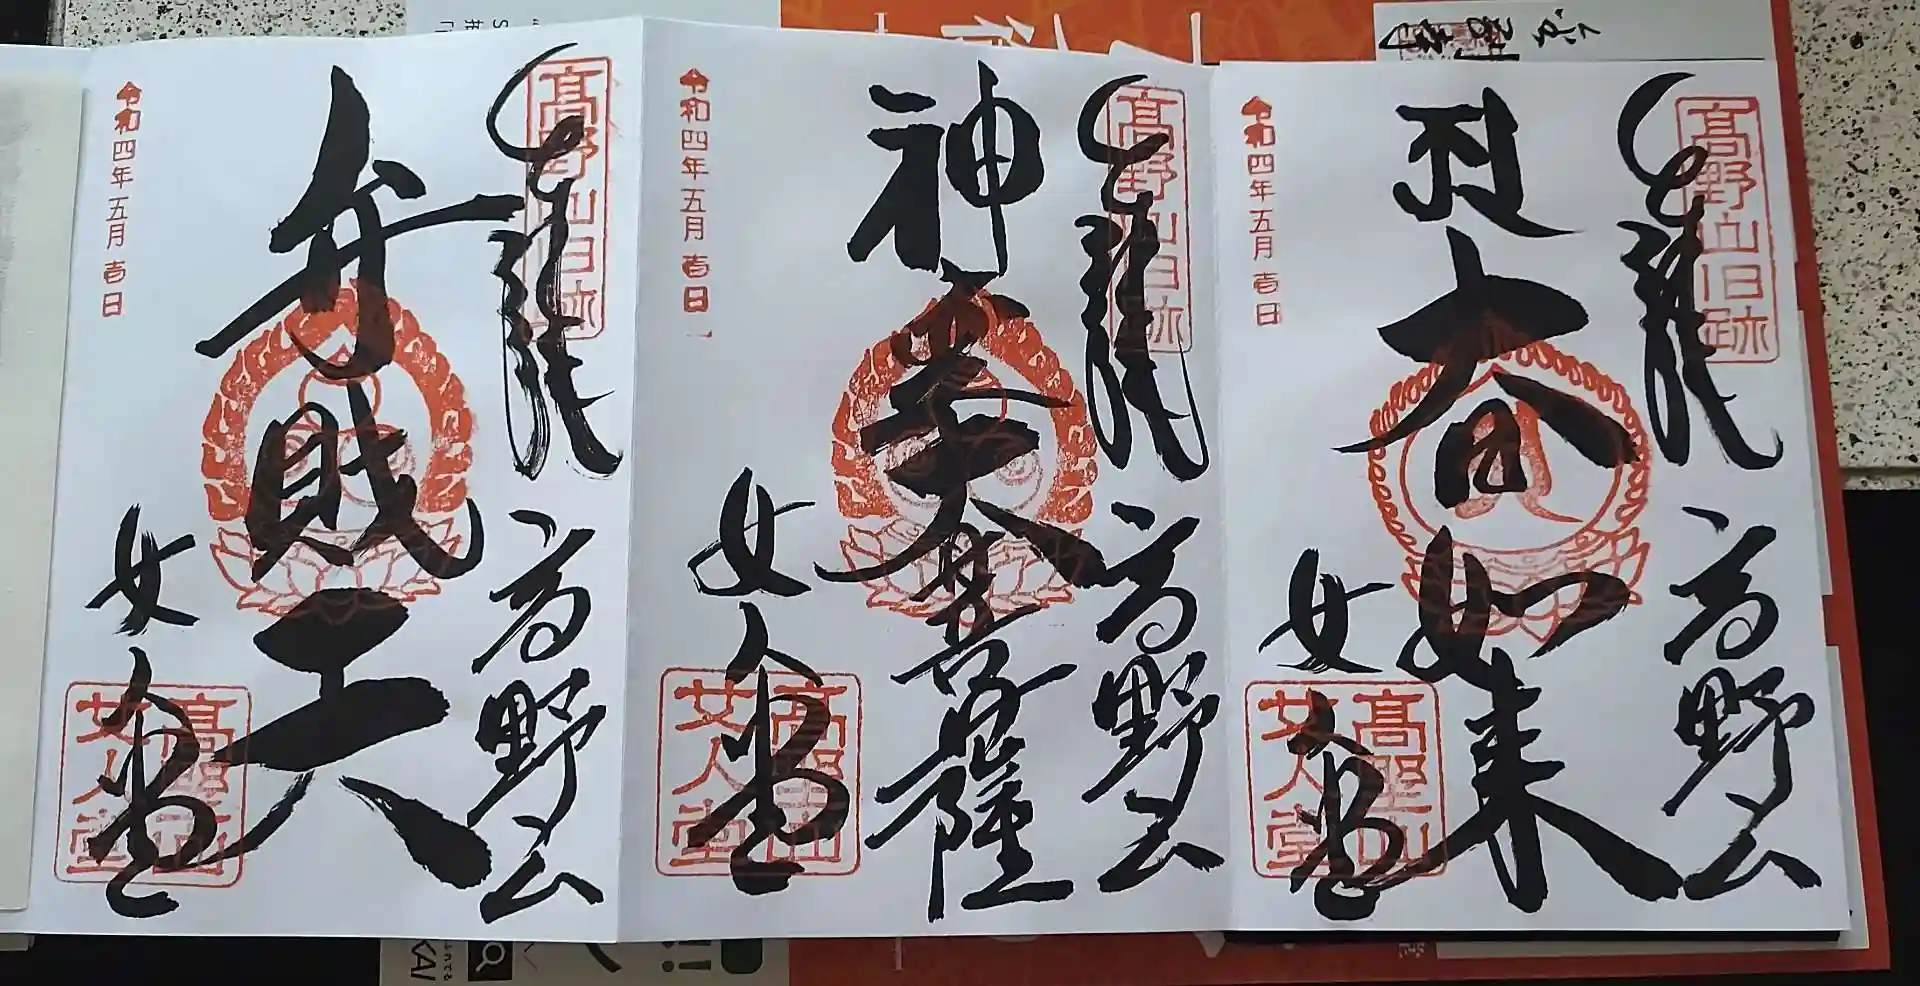 高野山旧跡
高野山
大日如来
女人堂
高野山女人堂
令和四年五月壱日
高野山旧跡
高野山
神変大菩薩
女人堂
高野山女人堂
令和四年五月壱日
高野山旧跡
高野山
弁財天
女人堂
高野山女人堂
令和四年五月壱日